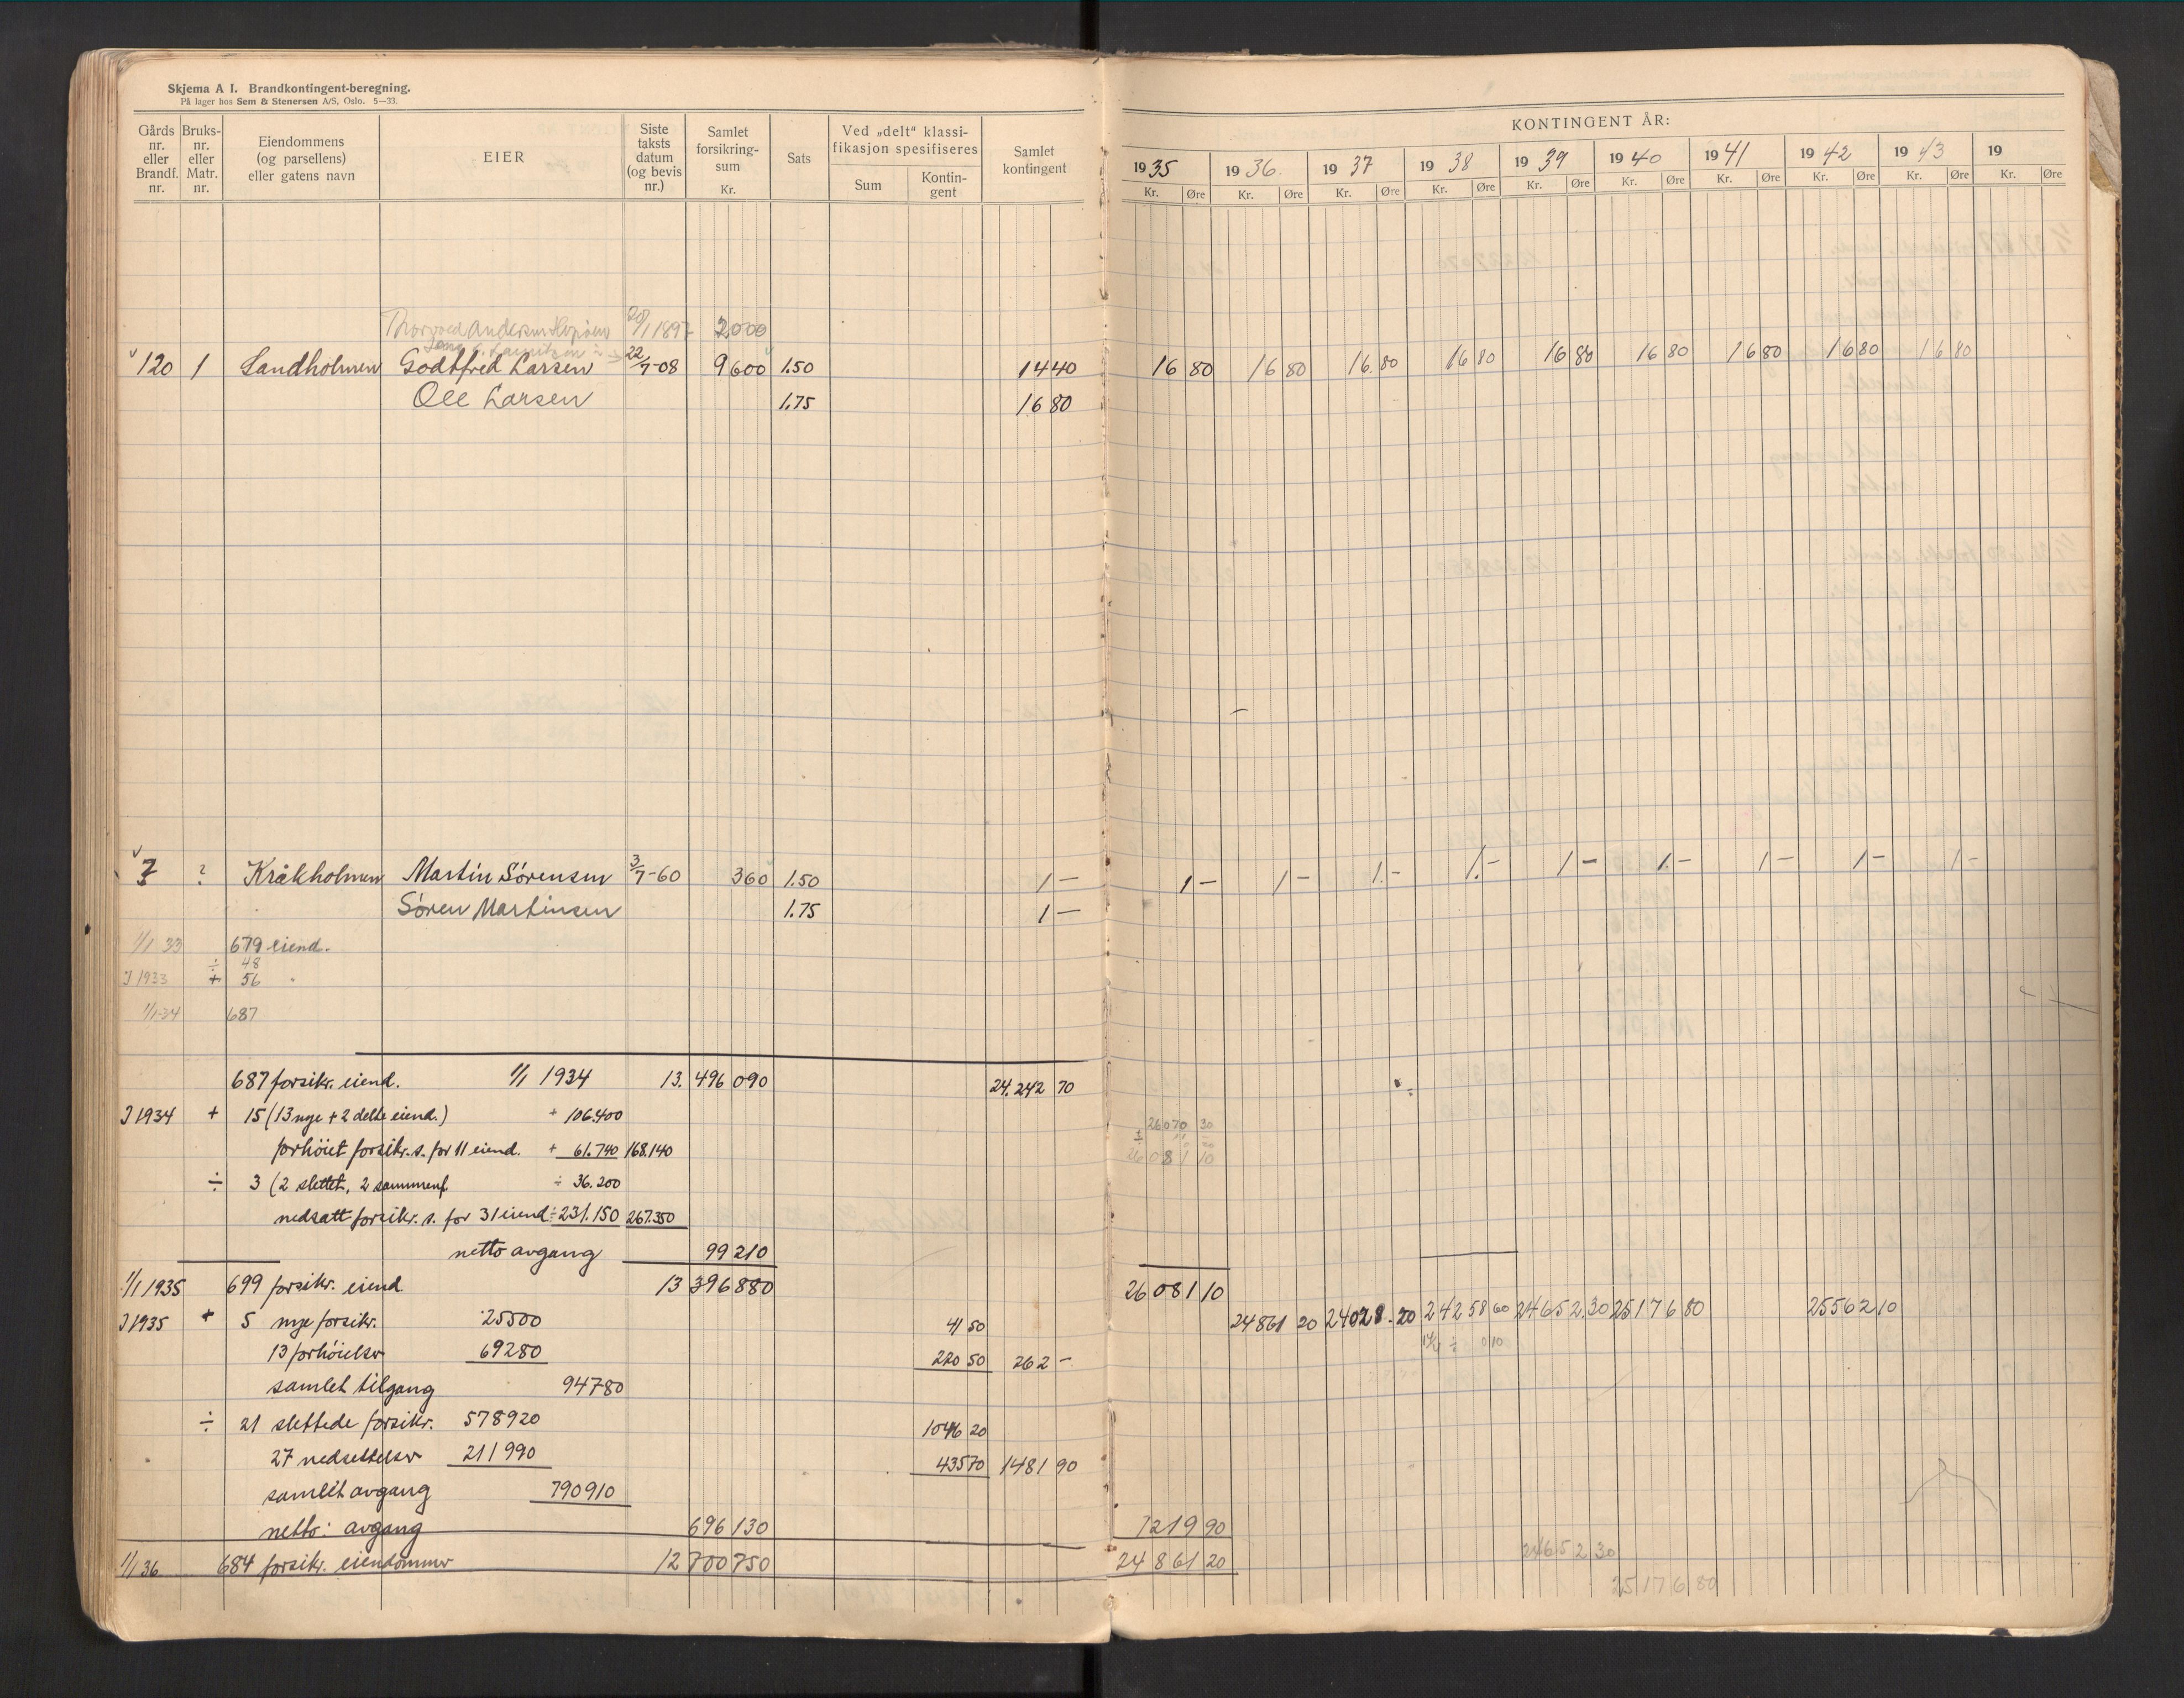 Skjema A I. Brandkontingent-beregning.
På lager hos Sem & Stenersen A/S, Oslo. 5—33.
Gårds nr. eller Brandf. nr. Bruks- nr. eller Matr. nr. Eiendommens (og parsellens) eller gatens navn EIER Siste taksts datum (og bevis nr.) Samlet forsikring- sum Kr. Sats Ved „delt" klassi- fikasjon spesifiseres Sum Kontin- gent Samlet kontingent
KONTINGENT ÅR:
1935 1936. 1937 1938 1939 1940 1941 1942 1943 19
Kr. Øre Kr. Øre Kr. Øre Kr. Øre Kr. Øre Kr. Øre Kr. Øre Kr. Øre Kr. Øre Kr. Øre
Andersen 20/1 1897 2000
120 1 Sandholmen Godtfred Larsen 22/7-08 9600 1.50 14 40 16 80 16 80 16. 80 16 80 16 80 16 80 16 80 16 80 16 80
Ole Larsen 1.75 16 80
? ? Kråkholmen Martin Sørensen 3/7-60 360 1.50 1 — 1 — 1 — 1.— 1.— 1 — 1.— 1 — 1 — 1 —
Søren Martinsen 1.75 1 —
1/1 33 679 eiend.
÷ 48
I 1933 + 56 "
1/1-34 687
687 forsikr. eiend. 1/1 1934 13. 496 090 24.242 70
I 1934 + 15 (13 nye + 2 delte eiend.) + 106.400
26070 30
forhöiet forsikr. s. for 11 eiend. + 61.740 168.140
26081 10
÷ 3 (2 slettet, 2 sammenf. ÷ 36.200
nedsatt forsikr. s. for 31 eiend ÷ 231.150 267.350
netto avgang 99 210
1/1 1935 699 forsikr. eiend. 13 396 880 26 081 10
I 1935 + 5 nye forsikr. 25500 41 50 24861 20 24028.20 24258 60 24652.30 25176 80 25562 10
13 forhöielser 69280 220 50 262 —
samlet tilgang 94780
÷ 21 slettede forsikr. 578920 1046 20
27 nedsettelser 211990 435 70 1481 90
samlet avgang 790910
netto: avgang 696 130 1219 90
1/1 36 684 forsikr. eiendommer 12 700 750 24 861 20
24652 30
25176 80